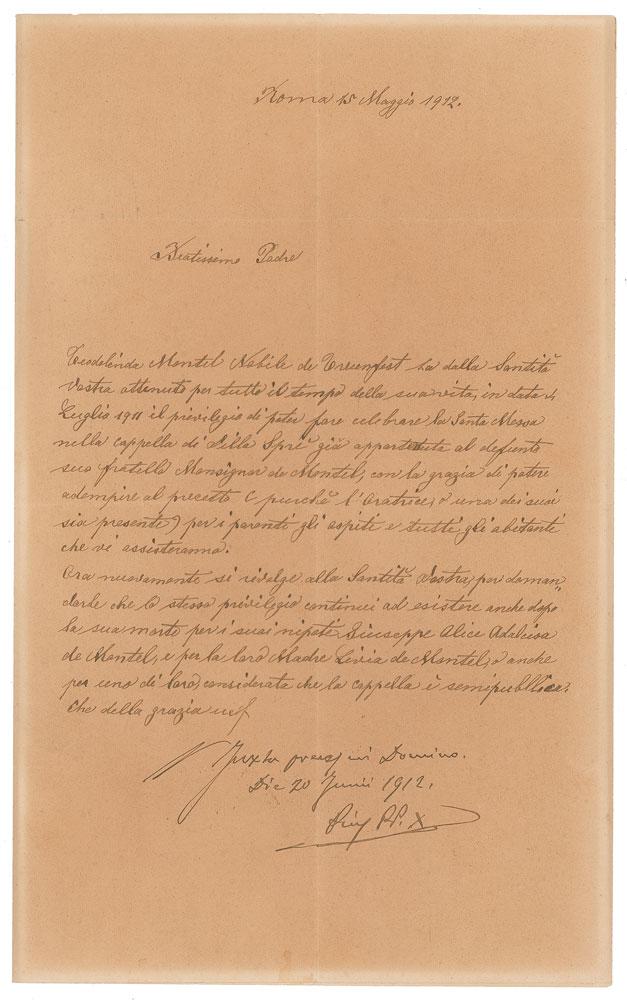 Roma 15 Maggio 1912.
Beatissimo Padre
Teodolinda Montel Nobile de Treuenfest ha dalla Santità
Vostra ottenuto per tutto il tempo della sua vita, in data 4
Luglio 1911 il privilegio di poter fare celebrare la Santa Messa
nella cappella di Villa Spré già appartenuta al defunto
suo fratello Monsignor de Montel, con la grazia di potere
adempire al precetto (purchè l'oratrice, o una dei suoi
sia presente) per i parenti gli ospiti e tutti gli abitanti
che vi assisteranno.
Ora nuovamente si rivolge alla Santità Vostra, per doman„
darle che lo stesso privilegio continui ad esistere anche dopo
la sua morte per i suoi nipoti Giuseppe Alice Adalcisa
de Montel, e per la loro Madre Livia de Montel, o anche
per uno di loro, considerata che la cappella è semipubblica.
Che della grazia
Juxta preces in Domino.
Die 20 Junii 1912.
Pius PP. X